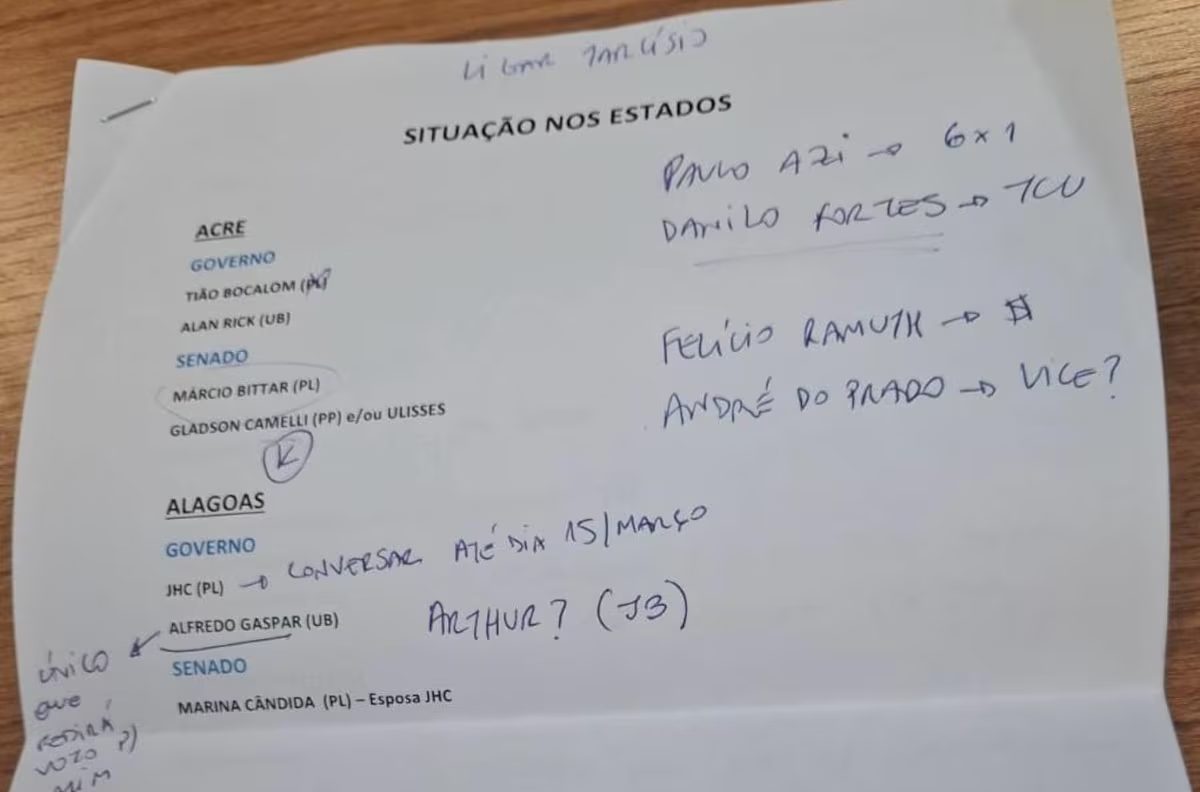 LIGAR TARCÍSIO
SITUAÇÃO NOS ESTADOS
PAULO AZI → 6x1
DANILO FORTES → TCU
FELÍCIO RAMUTH → $
ANDRÉ DO PRADO → VICE?
ACRE
GOVERNO
TIÃO BOCALOM
ALAN RICK (UB)
SENADO
MÁRCIO BITTAR (PL)
GLADSON CAMELLI (PP) e/ou ULISSES
K
ALAGOAS
GOVERNO
JHC (PL) → CONVERSAR ATÉ DIA 15/MARÇO
ALFREDO GASPAR (UB)
ARTHUR? (JB)
ÚNICO
QUE
PEDIRÁ
VOTO P/
MIM
SENADO
MARINA CÂNDIDA (PL) – Esposa JHC